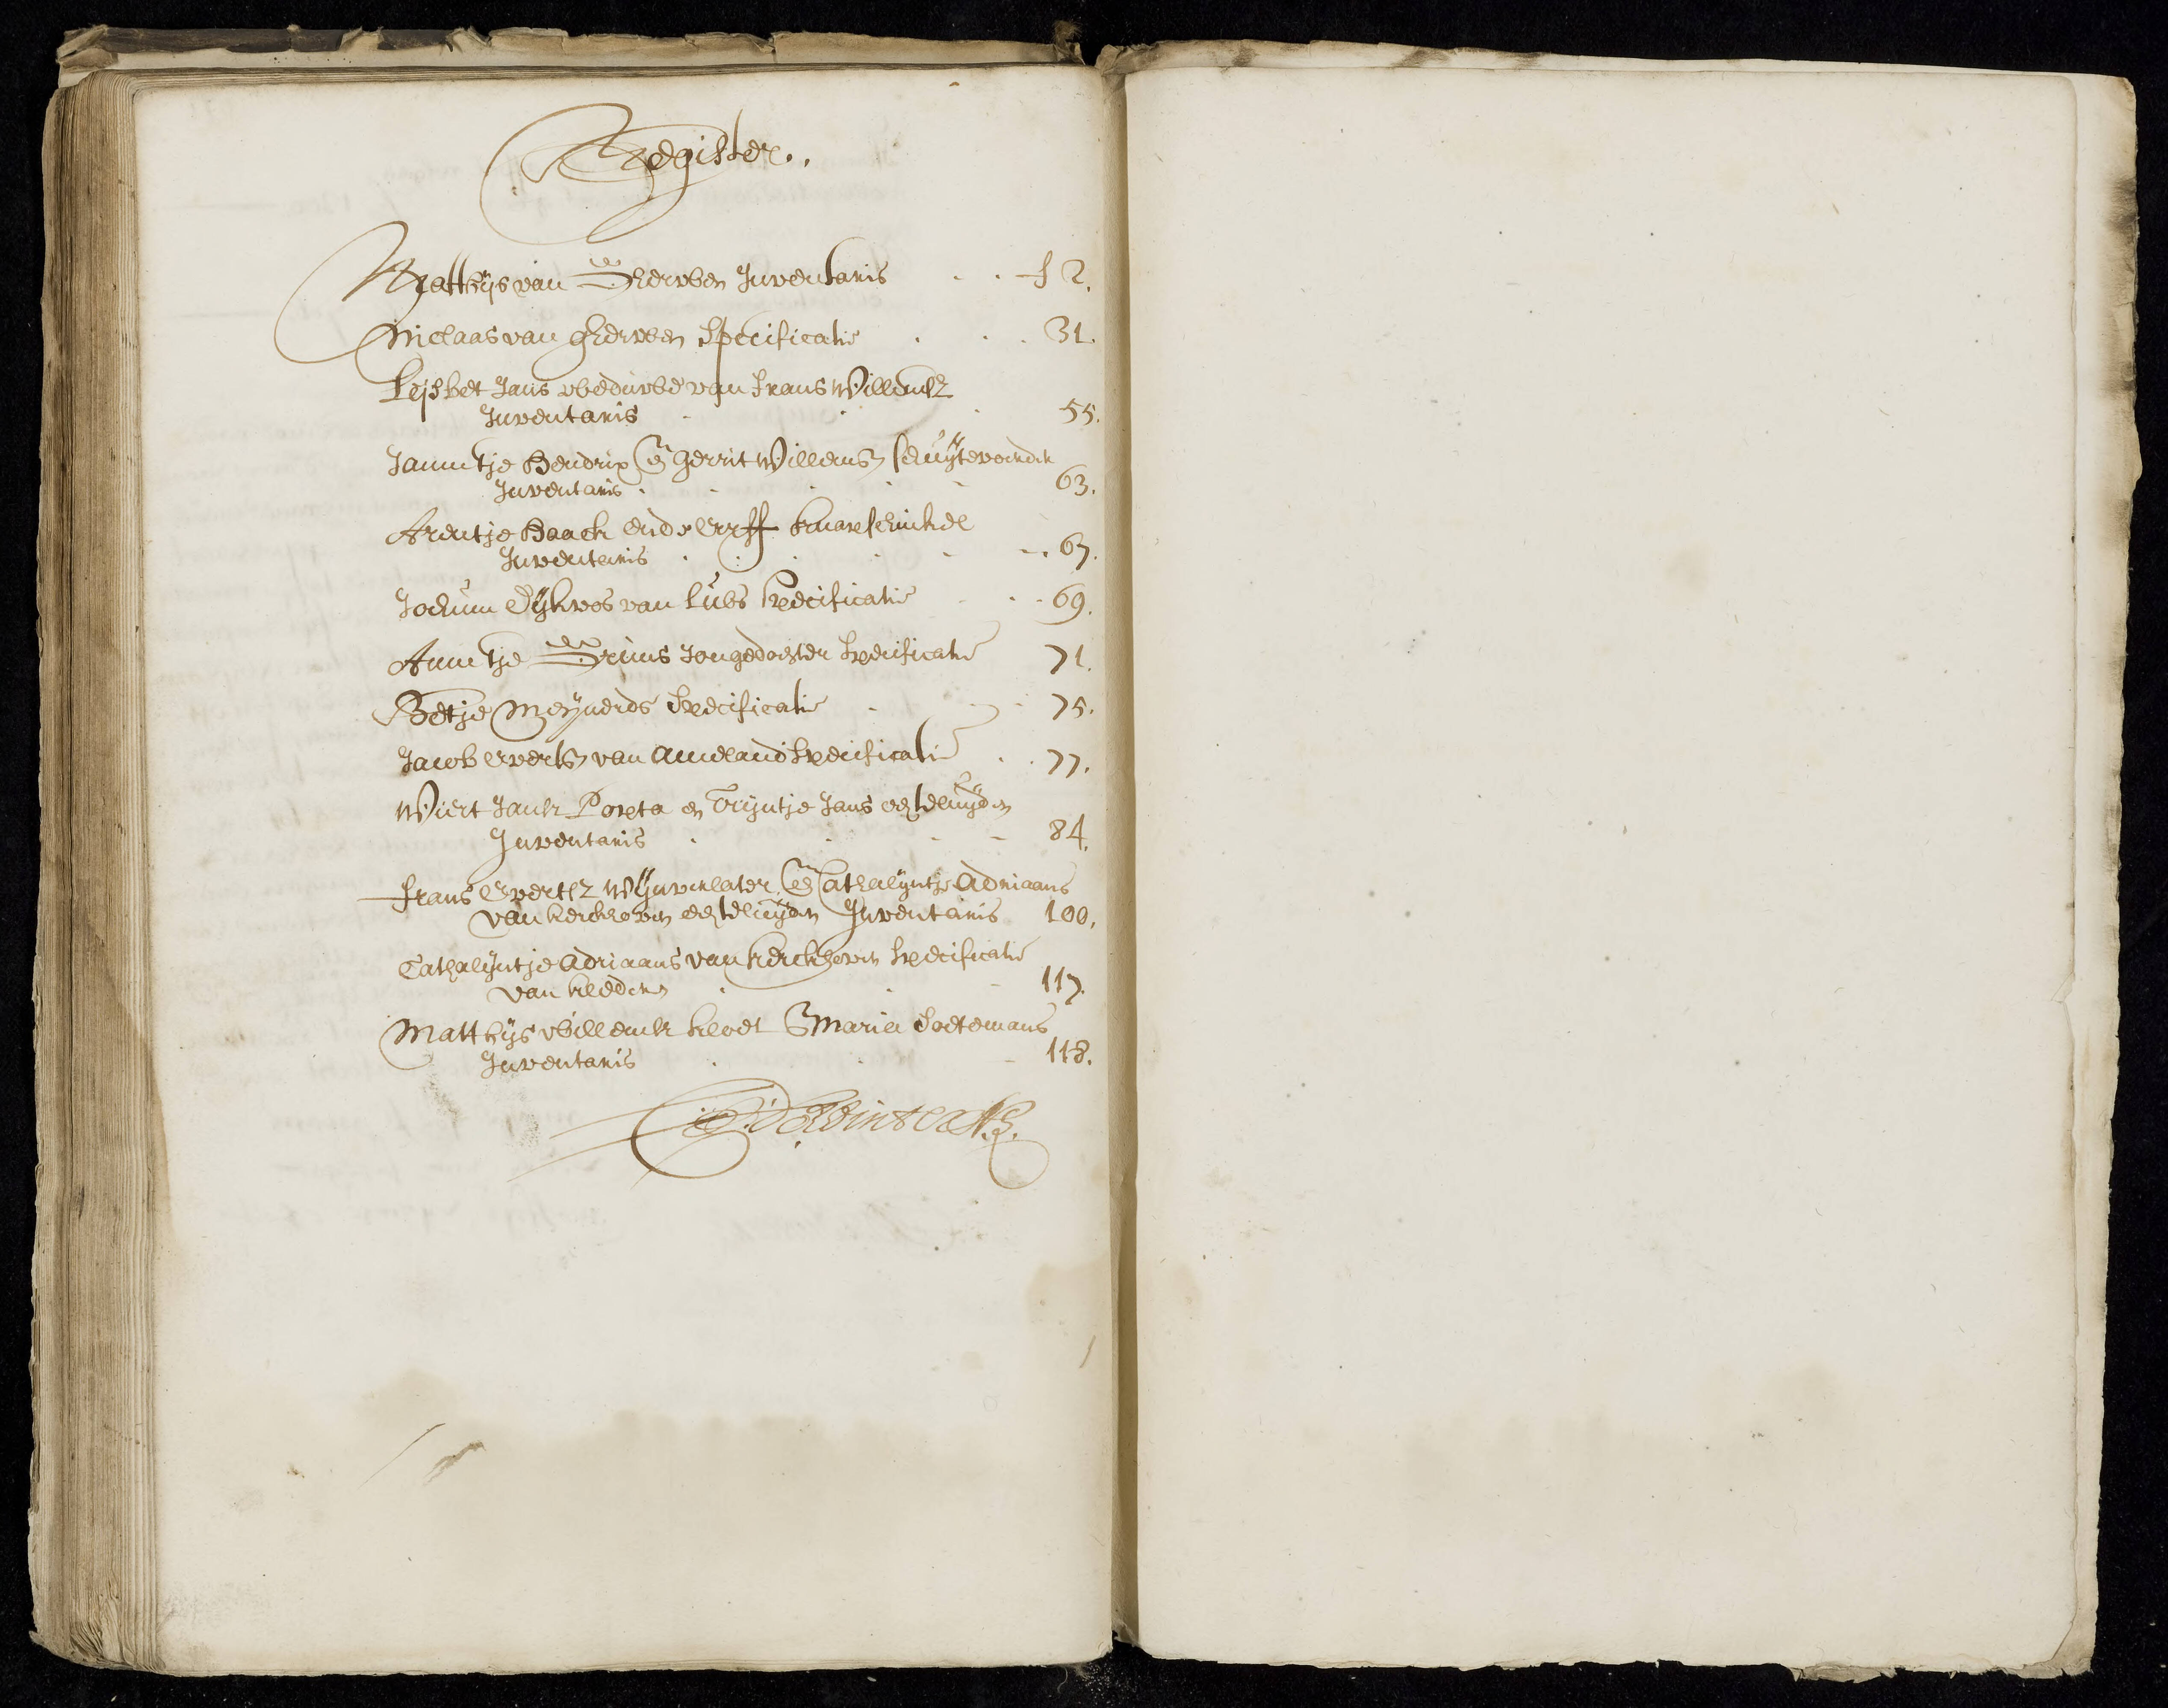 Register.,
Matthijs van Gherwen Inventaris . . f 2.
Niclaas van Gherwen Specificatie . . . 31.
Lijsbet Jans weduwe van Frans Willemsz
Inventaris . . . 55.
Jannetje Hendrix en Gerrit Willemsz
Inventaris . . . . . 63.
Arentje Haack ende Evert
Inventaris . . . . . . 67.
Jochum Dijkvos van Lubs Specificatie . . . 69.
Annetje Driins Jongedochter Specificatie 71.
Betje Meijnerds Specificatie . . . 75.
Jacob Everts van Ameland Specificatie . . 77.
Wiert Jansz Popta en Trijntje Jans echteluijden
Inventaris . . . . 84.
Frans Evertsz Wijnverlater, en Cathalijntje Adriaans
van Kerckhoven echteluijden Inventaris 100.
Cathalijntje Adriaans van Kerckhoven Specificatie
van kleederen . . . 117.
Matthijs Willemsz Kloet en Maria Soetemans
Inventaris . . . 118.